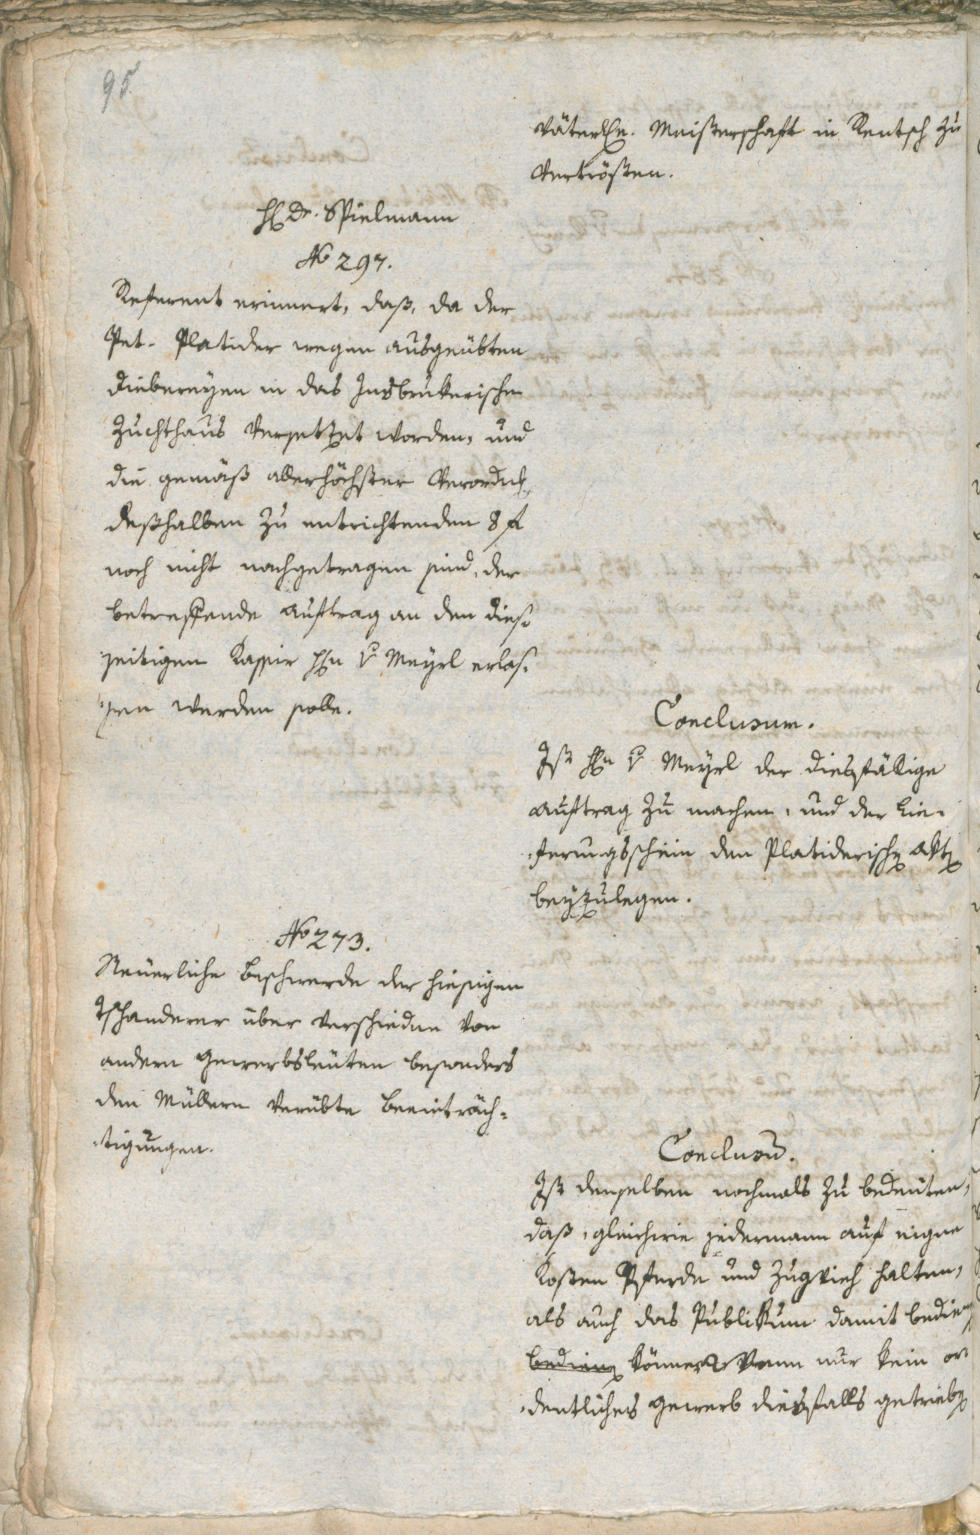 95
väterlhe. Meisterschaft in Rentsch zu
vertrösten.
H Dr. Spielmann
No 297.
Referent erinnert, daß, da der
Pet. Platider wegen ausgeübten
Diebereyen in das Insbrukerische
Zuchthaus versetzet worden, und
die gemäß allerhöchster Verordnk
deßhalben zu entrichtenden 8 f
noch nicht nachgetragen sind, der
betreffende Auftrag an den dies:
zeitigen Kassir Hn v Meyrl erlas:
:sen werden solle.
Conclusum.
Ist Hn v Meyrl der diesfällige
Auftrag zu machen, und der Lie:
:ferungsschein den Platiderischen Akten
beyzulegen.
No 273.
Neuerliche Beschwerde der hiesigen
Tschanderer über verschiedne von
andern Gewerbsleuten besonders
den Müllern verübte Beeinträch:
:tigungen.
Conclusum.
Ist denselben nochmals zu bedeuten,
daß, gleichwie jedermann auf eigne
Kosten Pferde und Zugvieh halten,
als auch das Publikum damit bedien
bedienen können wenn nur kein or
:dentliches Gewerb diesfalls getrieben